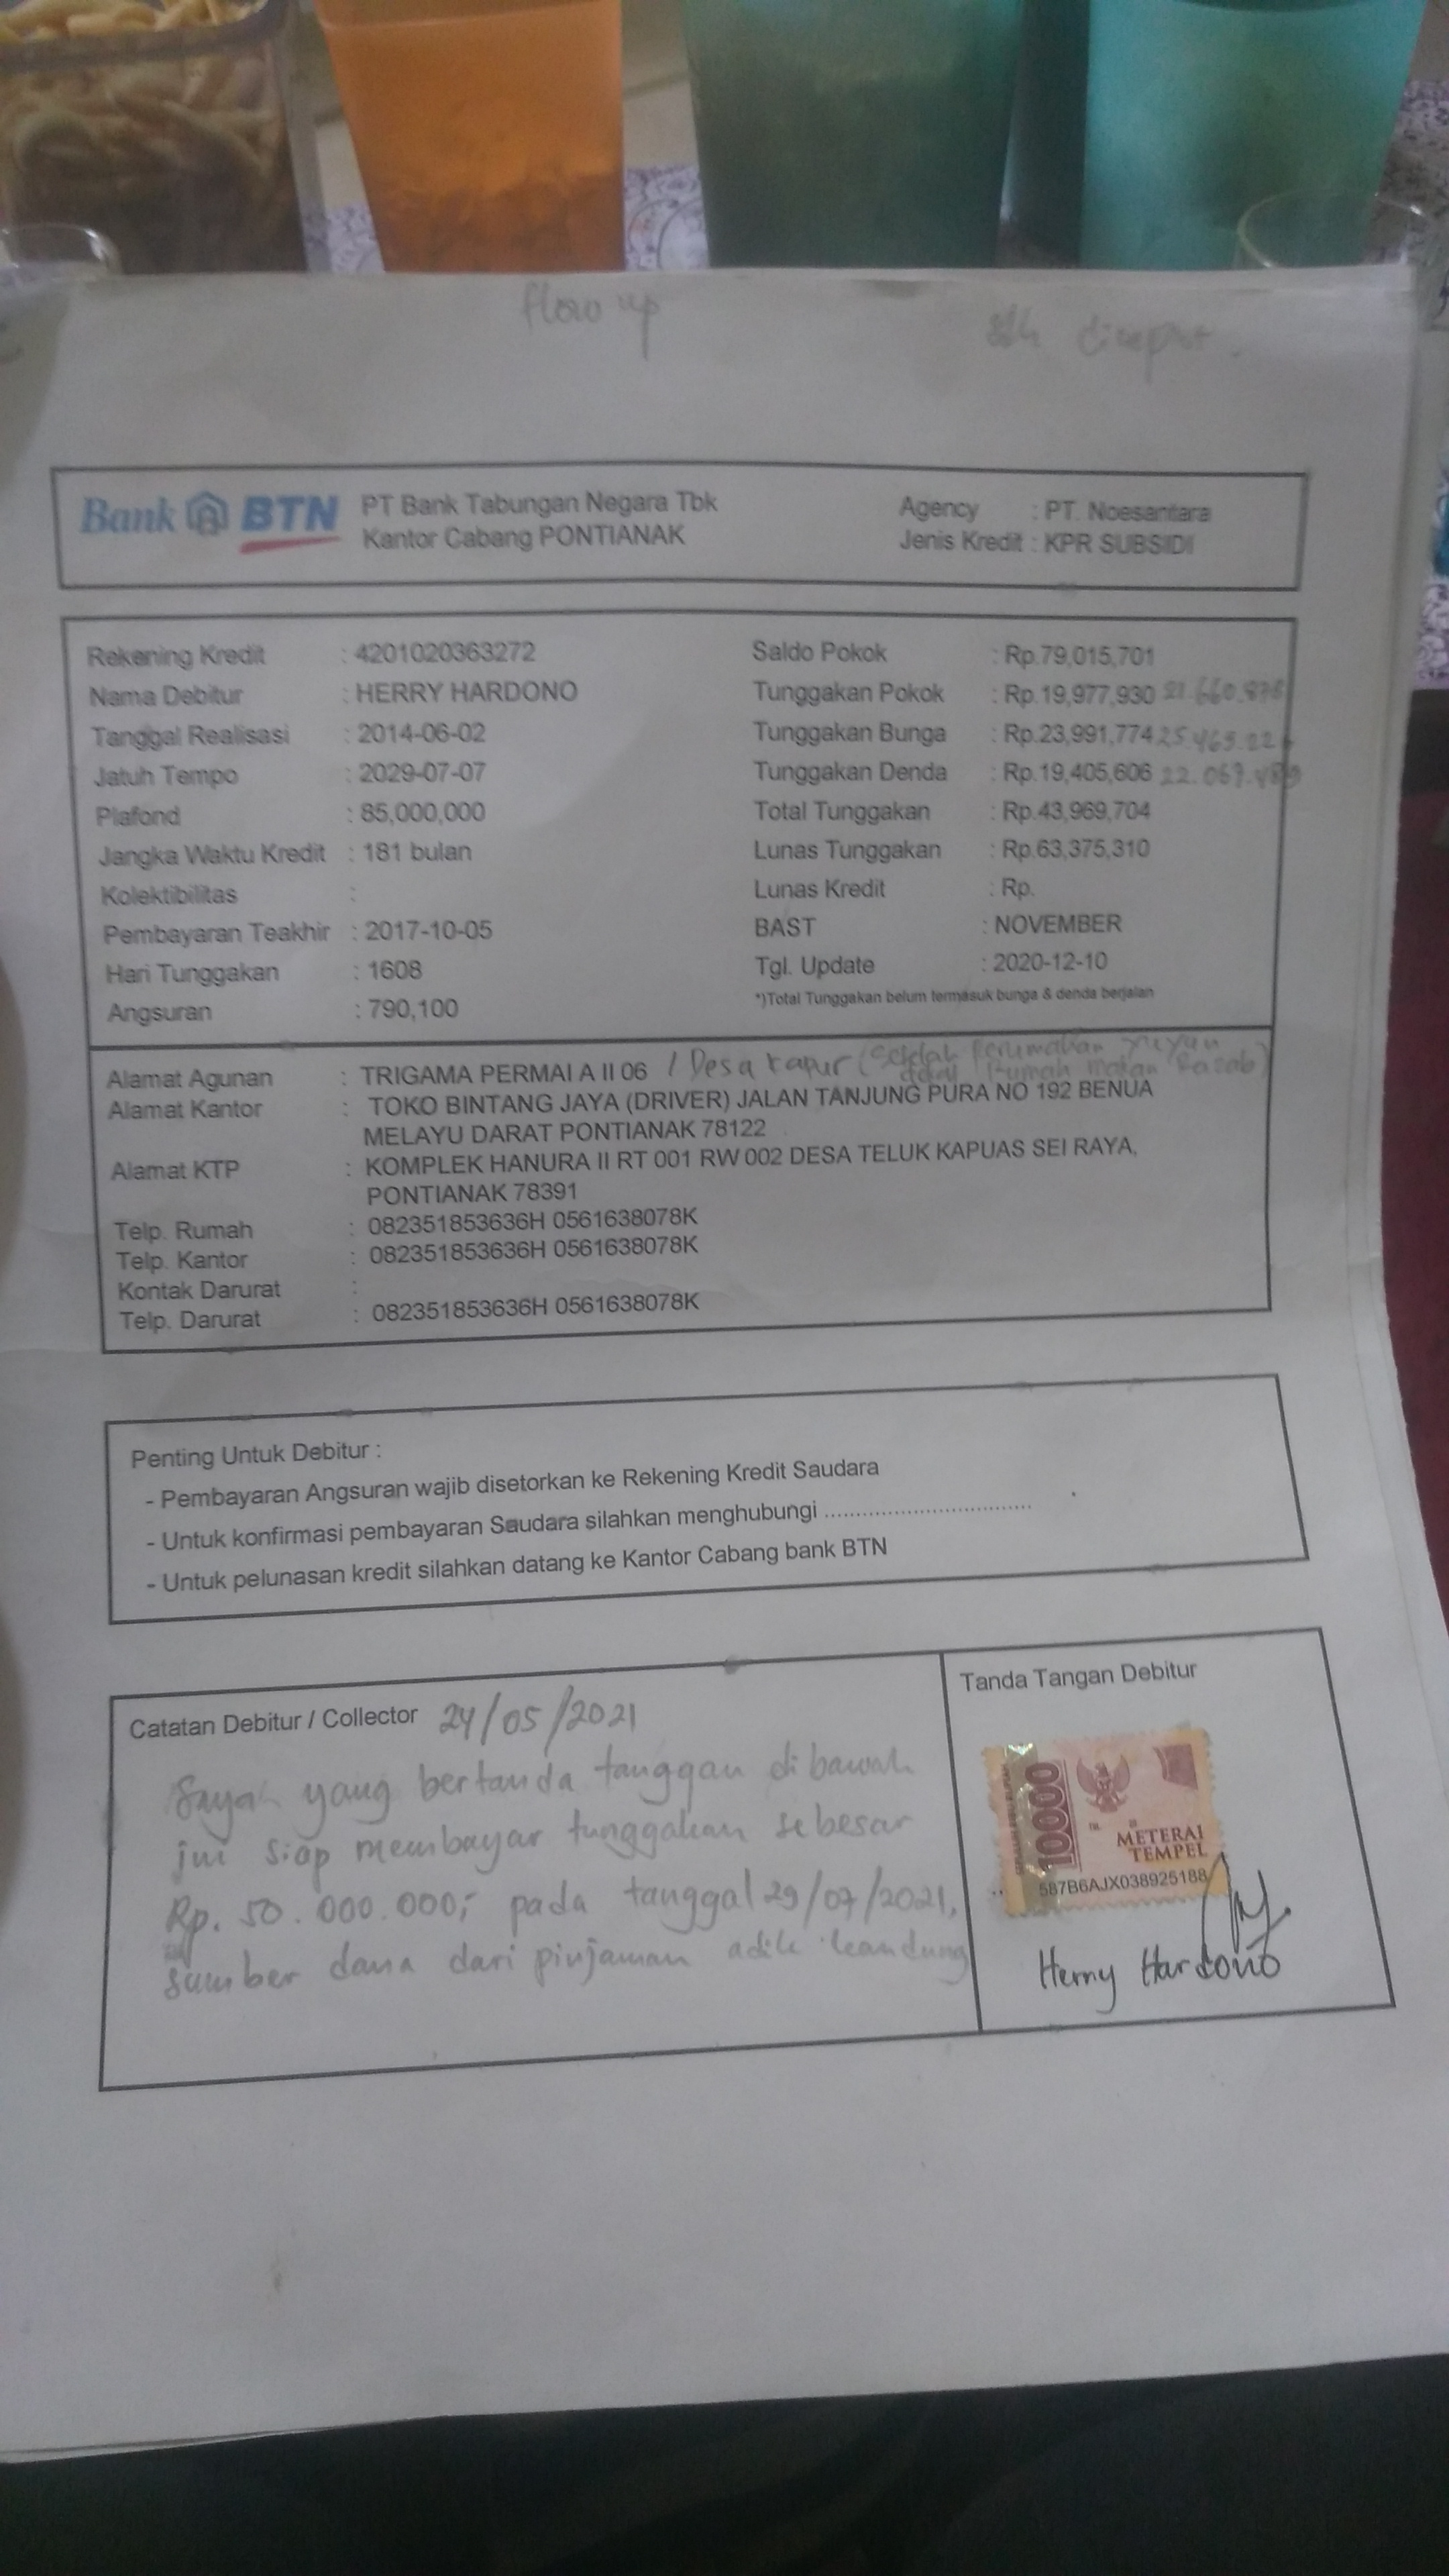 flow up
Bank BTN PT Bank Tabungan Negara Tbk
Kantor Cabang PONTIANAK
Agency : PT. Noesantara
Jenis Kredit : KPR SUBSIDI
Rekening Kredit : 4201020363272
Nama Debitur : HERRY HARDONO
Tanggal Realisasi : 2014-06-02
Jatuh Tempo : 2029-07-07
Plafond : 85,000,000
Jangka Waktu Kredit : 181 bulan
Kolektibilitas :
Pembayaran Teakhir : 2017-10-05
Hari Tunggakan : 1608
Angsuran : 790,100
Saldo Pokok : Rp.79,015,701
Tunggakan Pokok : Rp.19,977,930
Tunggakan Bunga : Rp.23,991,774
Tunggakan Denda : Rp.19,405,606
Total Tunggakan : Rp.43,969,704
Lunas Tunggakan : Rp.63,375,310
Lunas Kredit : Rp.
BAST : NOVEMBER
Tgl. Update : 2020-12-10
*)Total Tunggakan belum termasuk bunga & denda berjalan
Alamat Agunan : TRIGAMA PERMAI A II 06 / Desa kapur (setelah perumahan
Rumah makan
Alamat Kantor : TOKO BINTANG JAYA (DRIVER) JALAN TANJUNG PURA NO 192 BENUA
MELAYU DARAT PONTIANAK 78122
Alamat KTP : KOMPLEK HANURA II RT 001 RW 002 DESA TELUK KAPUAS SEI RAYA,
PONTIANAK 78391
Telp. Rumah : 082351853636H 0561638078K
Telp. Kantor : 082351853636H 0561638078K
Kontak Darurat :
Telp. Darurat : 082351853636H 0561638078K
Penting Untuk Debitur :
- Pembayaran Angsuran wajib disetorkan ke Rekening Kredit Saudara
- Untuk konfirmasi pembayaran Saudara silahkan menghubungi .................................
- Untuk pelunasan kredit silahkan datang ke Kantor Cabang bank BTN
Catatan Debitur / Collector 24/05/2021
Sayah yang bertanda tanggan di bawah
ini siap membayar tunggakan sebesar
Rp. 50.000.000,- pada tanggal 29/07/2021,
sumber dana dari pinjaman adik kandung
Tanda Tangan Debitur
10000
METERAI
TEMPEL
587B6AJX038925188
Herry Hardono